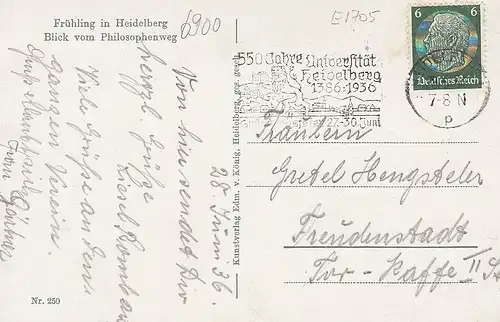 Frühling in Heidelberg
Blick vom Philosophenweg
6900
E1705
550 Jahre Universität
Heidelberg
1386-1936
27.-30. Juni
6 6
Deutsches Reich
7-8 N
p
Fräulein
Gretel Hengsteler
Freudenstadt
Tor-Kaffe II
28. Juni 36.
Von hier sendet Dir
herzl. Grüße
Liesel
Viele Grüße an den
ganzen Verein.
Kunstverlag Edm. v. König, Heidelberg, ges. gesch.
Nr. 250